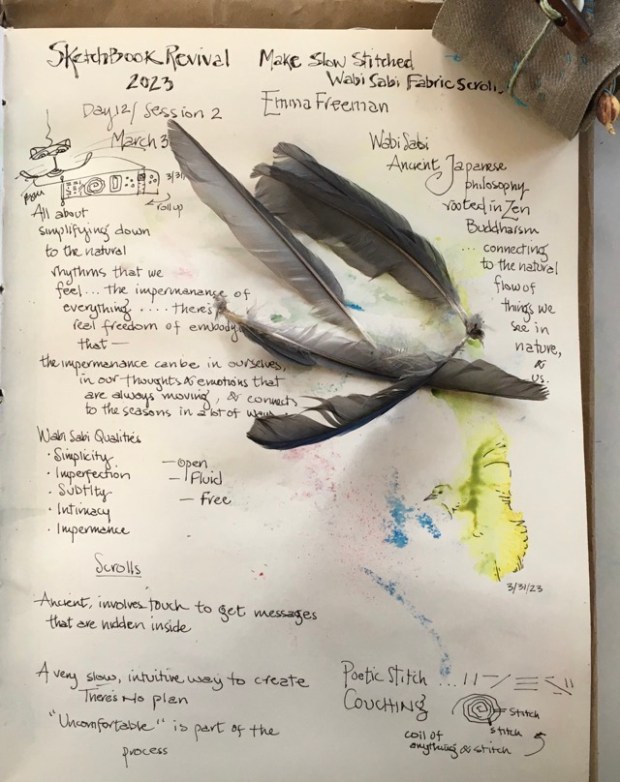 SketchBook Revival
2023
Make Slow Stitched
Wabi Sabi Fabric Scroll
Emma Freeman
Day 12/Session 2
March 3
3/31
roll up
Wabi Sabi
Ancient Japanese
philosophy
rooted in Zen
Buddharism
... connecting
to the natural
flow of
things we
see in
nature,
&
us.
All about
simplifying down
to the natural
rhythms that we
feel... the impermanance of
everything .... there's
real freedom of embody
that —
the impermanance can be in ourselves,
in our thoughts & emotions that
are always moving, & connects
to the seasons in a lot of ways
Wabi Sabi Qualities
· Simplicity
· Imperfection
· Subtlty
· Intimacy
· Impermance
— open
— Fluid
— Free
3/31/23
Scrolls
Ancient, involves touch to get messages
that are hidden inside
A very slow, intuitive way to create
There's No plan
"Uncomfortable" is part of the
process
Poetic Stitch ...
Couching
stitch
stitch
coil of
anything & stitch